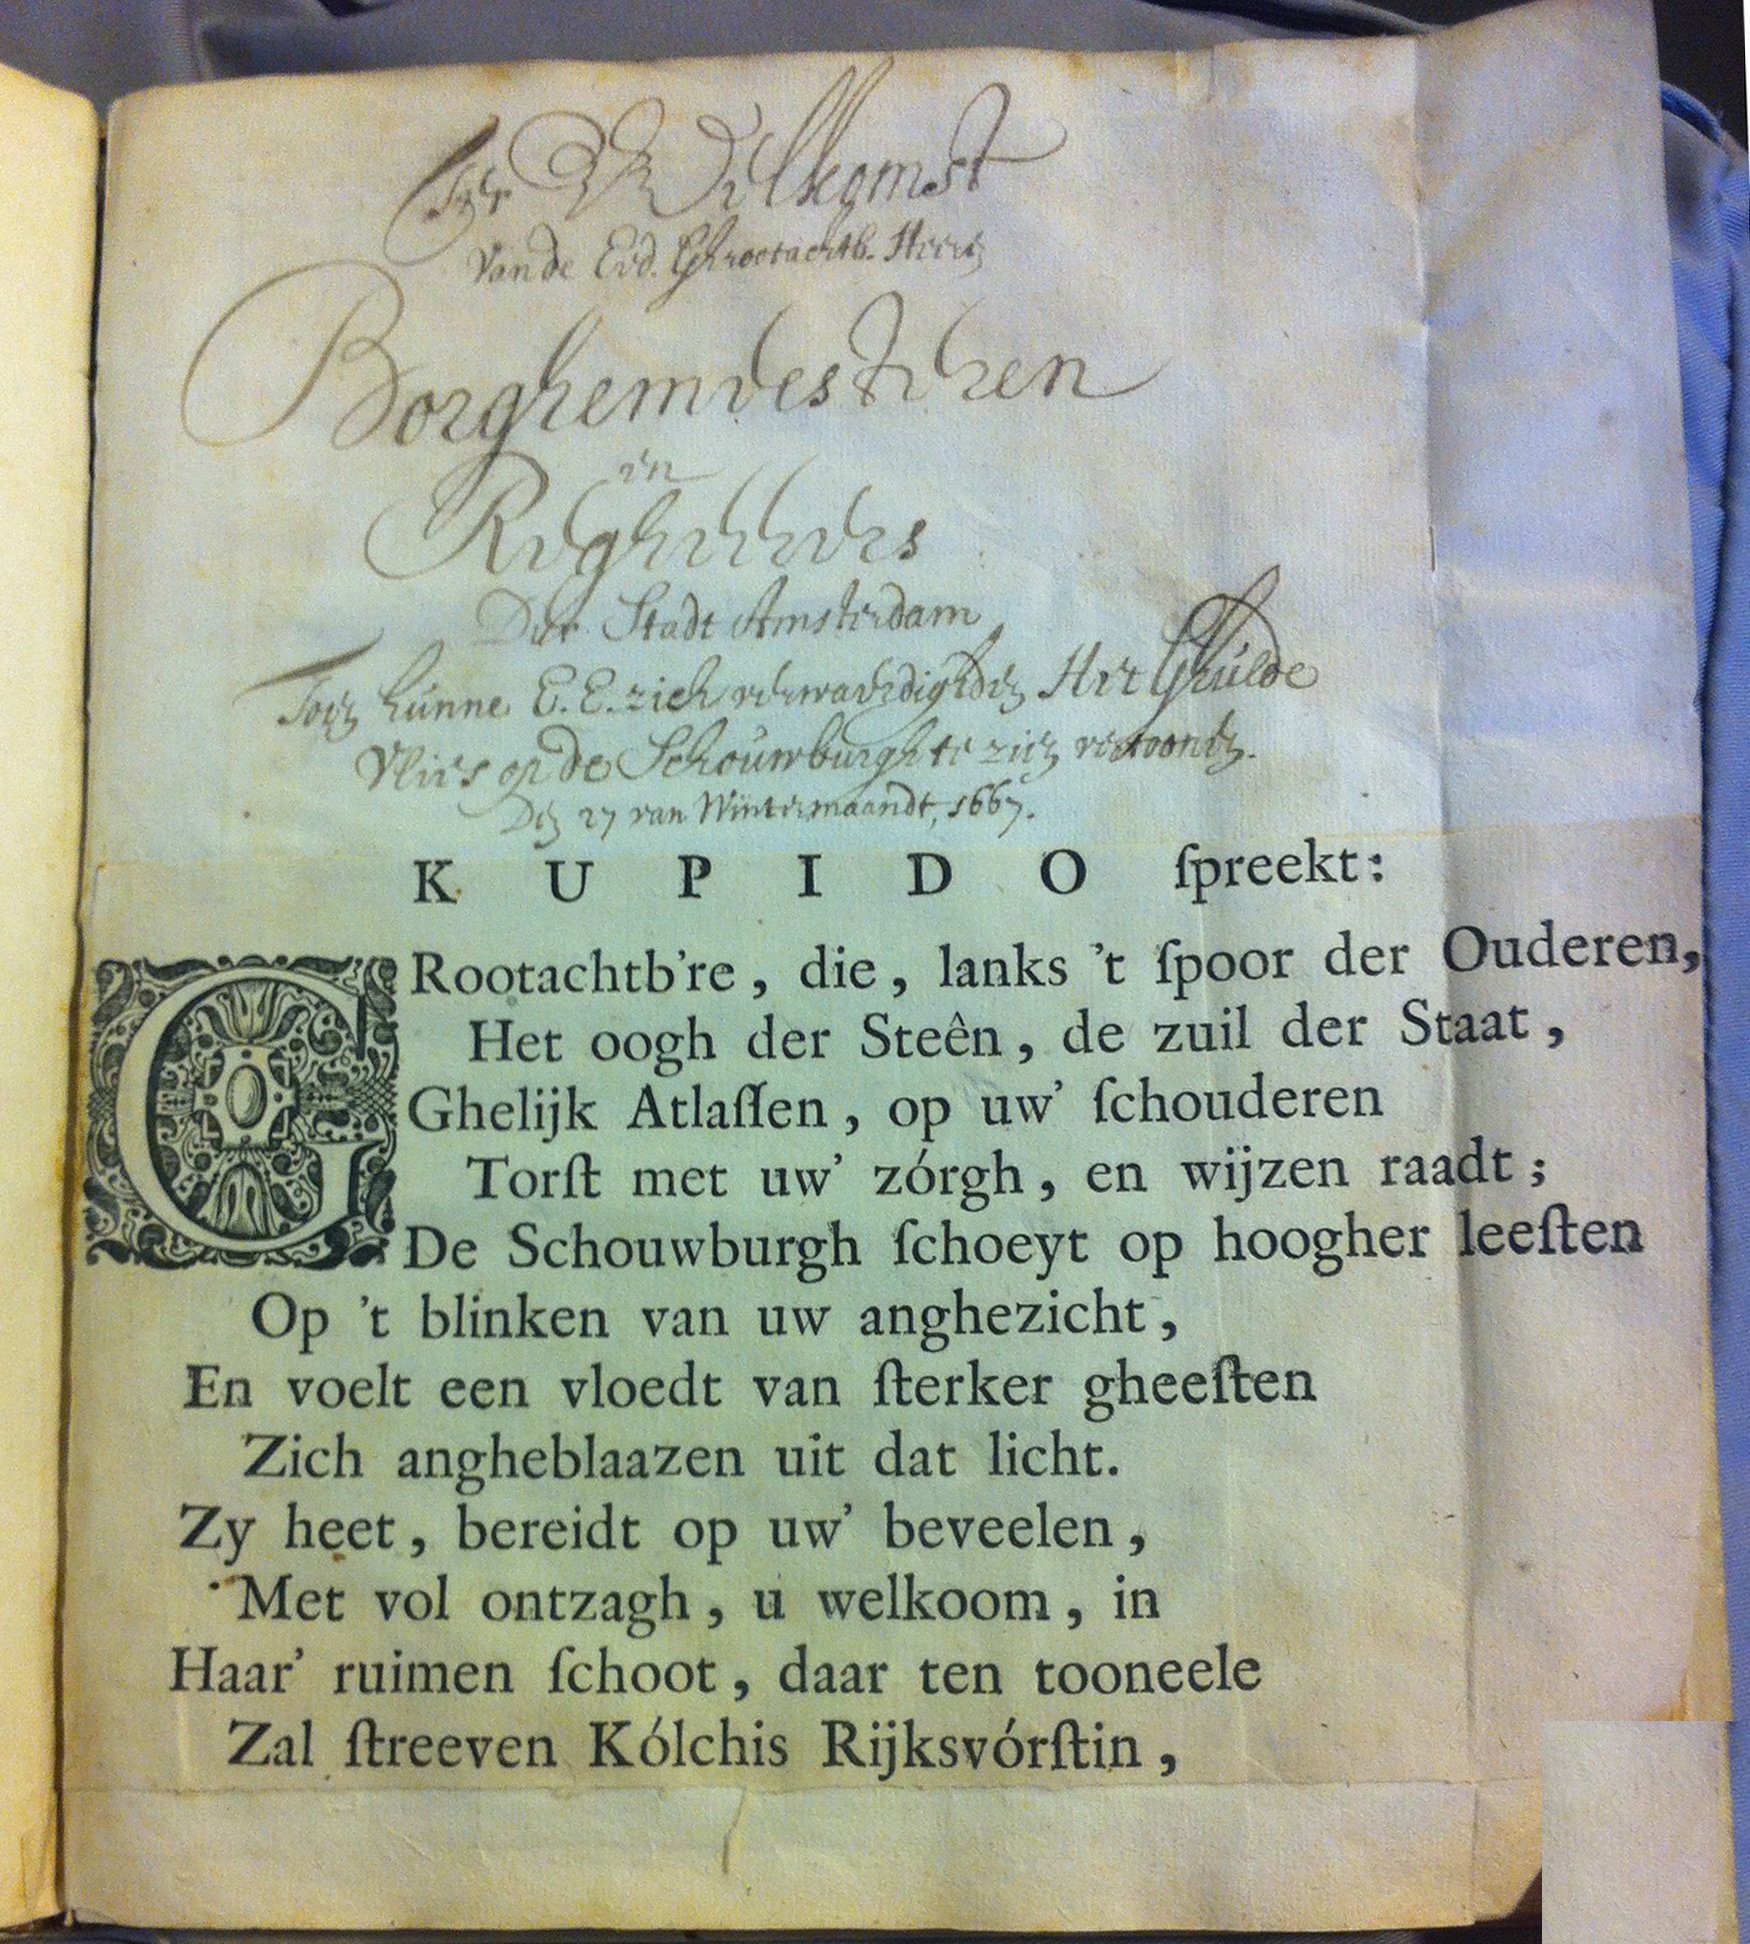 Ter Wilkomst
Van de Eed. Ghrootachtb. Heeren
Borghemeesteren
en
Regheerders
Der Stadt Amsterdam
Toen hunne E. E. zich verwaerdighden Het Ghulde
Vlies op de Schouwburgh te zien vertoonen.
Den 27 van Wintermaandt, 1667.
KUPIDO ſpreekt:
GRootachtb're, die, lanks 't ſpoor der Ouderen,
Het oogh der Steên, de zuil der Staat,
Ghelijk Atlaſſen, op uw' ſchouderen
Torſt met uw' zórgh, en wijzen raadt;
De Schouwburgh ſchoeyt op hoogher leeſten
Op 't blinken van uw anghezicht,
En voelt een vloedt van ſterker gheeſten
Zich angheblaazen uit dat licht.
Zy heet, bereidt op uw' beveelen,
Met vol ontzagh, u welkoom, in
Haar' ruimen ſchoot, daar ten tooneele
Zal ſtreeven Kólchis Rijksvórſtin,